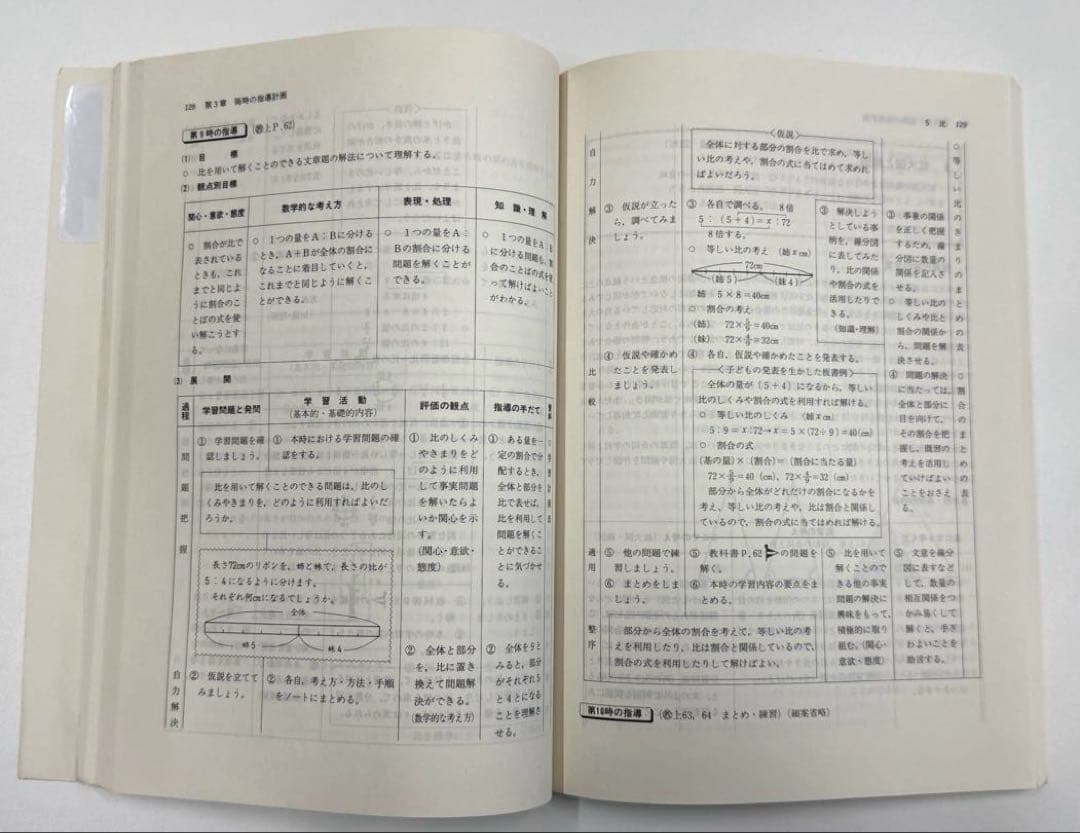 128 第3章 随時の指導計画
第9時の指導 (教上P.62)
(1) 目 標
○ 比を用いて解くことのできる文章題の解法について理解する。
(2) 観点別目標
関心・意欲・態度
○ 割合が比で
表されている
ときも、これ
までと同じよ
うに割合のこ
とばの式を使
い解こうとす
る。
数学的な考え方
○ 1つの量をA:Bに分ける
とき、A+Bが全体の割合に
なることに着目していくと、
これまでと同じように解くこ
とができる。
表現・処理
○ 1つの量をA:
Bの割合に分ける
問題を解くことが
できる。
知識・理解
○ 1つの量をA:B
に分ける問題も、割
合のことばの式を使
って解けばよいこと
がわかる。
(3) 展 開
過程
学習問題と発問
学習活動
(基本的・基礎的内容)
評価の観点
指導の手だて
問題把握
① 学習問題を確
認しましょう。
① 本時における学習問題の確
認をする。
比を用いて解くことのできる問題は、比の
しくみやきまりを、どのように利用すればよいだ
ろうか。
長さ72cmのリボンを、姉と妹で、長さの比が
5:4になるように分けます。
それぞれ何cmになるでしょうか。
全体
姉5
妹4
① 比のしくみ
やきまりをど
のように利用
して事実問題
を解いたらよ
いか関心を示
す。
(関心・意欲・
態度)
① ある量を一
定の割合で分
配するとき、
全体と部分を
比で表せば、
比を利用して
問題を解くこ
とができるこ
とに気づかせ
る。
自力解決
② 仮説を立てて
みましょう。
② 各自、考え方・方法・手順
をノートにまとめる。
② 全体と部分
を、比に置き
換えて問題解
決ができる。
(数学的な考え方)
② 全体を9と
みると、部分
がそれぞれ5
と4とになる
ことを理解さ
せる。
5 比 129
自力解決
〈仮説〉
全体に対する部分の割合を比で求め、等し
い比の考えや、割合の式に当てはめて求めれ
ばよいだろう。
③ 仮説が立った
ら、調べてみま
しょう。
③ 各自で調べる。 8倍
5:(5+4)=x:72
8倍する。
○ 等しい比の考え (姉xcm)
72cm
(姉5) (妹4)
姉 5×8=40cm
○ 割合の考え
(姉) 72×5/9=40cm
(妹) 72×4/9=32cm
③ 解決しよう
としている事
柄を、線分図
に表してみた
り、比の関係
や割合の式を
活用したりで
きる。
(知識・理解)
③ 事象の関係
を正しく把握
するため、線
分図に数量の
関係を記入さ
せる。
○ 等しい比の
しくみや比と
割合の関係か
ら、問題を解
決させる。
○等しい比のきまりのまとめの表
比較
④ 仮説や確かめ
たことを発表し
ましょう。
④ 各自、仮説や確かめたことを発表する。
〈子どもの発表を生かした板書例〉
全体の量が(5+4)になるから、等しい
比のしくみや割合の式を利用すれば解ける。
○ 等しい比のしくみ (姉xcm)
5:9=x:72→x=5×(72÷9)=40(cm)
○ 割合の式
(基の量)×(割合)=(割合に当たる量)
72×5/9=40 (cm)、72×4/9=32 (cm)
部分から全体がどれだけの割合になるかを
考え、等しい比の考えや、比は割合と関係し
ているので、割合の式に当てはめれば解ける。
④ 問題の解決
に当たっては、
全体と部分に
目を向けて、
その割合を把
握し、既習の
考えを活用し
ていけばよい
ことをおさえ
る。
○割合のまとめの表
適用
⑤ 他の問題で練
習しましょう。
⑤ 教科書P.62の問題を
解く。
⑤ 比を用いて
解くことので
きる他の事実
問題の解決に
興味をもって、
積極的に取り
組む。(関心・
意欲・態度)
⑤ 文章を線分
図に表すなど
して、数量の
相互関係をつ
かみ易くして
解くと、手ぎ
わよいことを
助言する。
整序
⑥ まとめをしま
しょう。
⑥ 本時の学習内容の要点をま
とめる。
部分から全体の割合を考えて、等しい比の考
えを利用したり、比は割合と関係しているので、
割合の式を利用したりして解けばよい。
第10時の指導 (教上63、64 まとめ・練習)(細案省略)